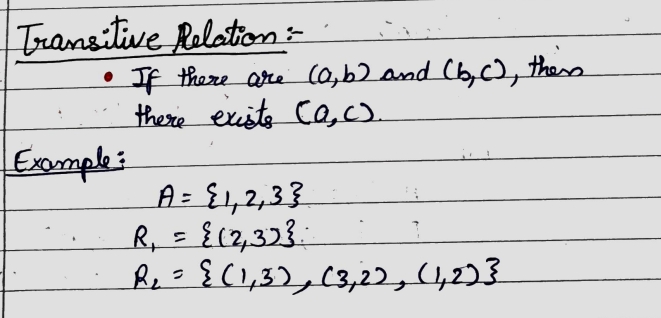 Transitive Relation :-
• If there are (a,b) and (b,c), then
there exists (a,c).
Example :
A = {1,2,3}
R₁ = {(2,3)}
R₂ = {(1,3), (3,2), (1,2)}